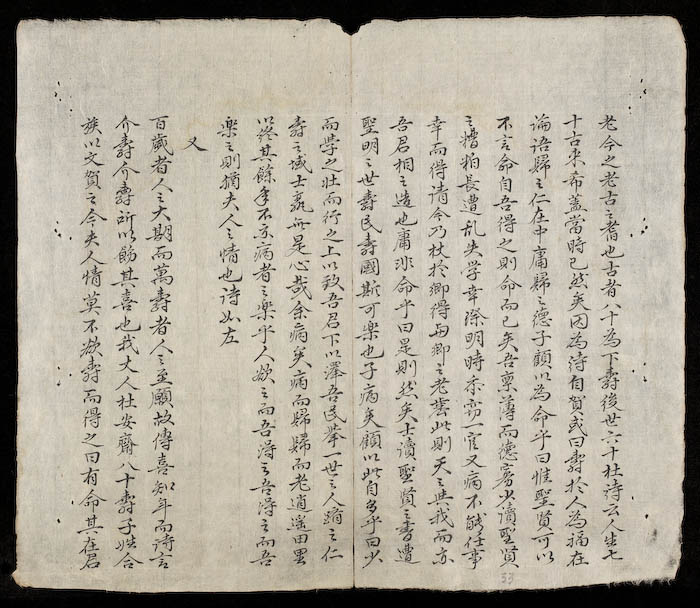 老今之老古之耆也古者八十為下壽後世六十杜詩云人生七
十古来希盖當時已然矣因為詩自賀或曰壽於人為福在
論語歸之仁在中庸歸之德子顧以為命乎曰惟聖賢可以
不言命自吾得之則命而已矣吾稟薄而德寡少讀聖賢
之糟粕長遭乱失学幸際明時忝一官又病不能任事
幸而得請今乃杖於鄉得與鄉之老此則天之與我而亦
吾君相之造也庸非命乎曰是則然矣士讀聖賢之書遭
聖明之世壽民壽國斯可樂也子病矣顧以此自多乎曰少
而學之壯而行之上以致吾君下以澤吾民挙一世之人躋之仁
壽之域士孰無是心哉余病矣病而歸歸而老逍遥田里
以終其餘年不亦病者之樂乎人欲之而吾得之吾得之而吾
樂之則猶夫人之情也诗如左
又
百歲者人之大期而萬壽者人之至願故傳喜知年而詩言
介壽介壽所以餙其喜也我丈人杜安齋八十壽子姓合
族以文賀之今夫人情莫不欲壽而得之曰有命其在君
33